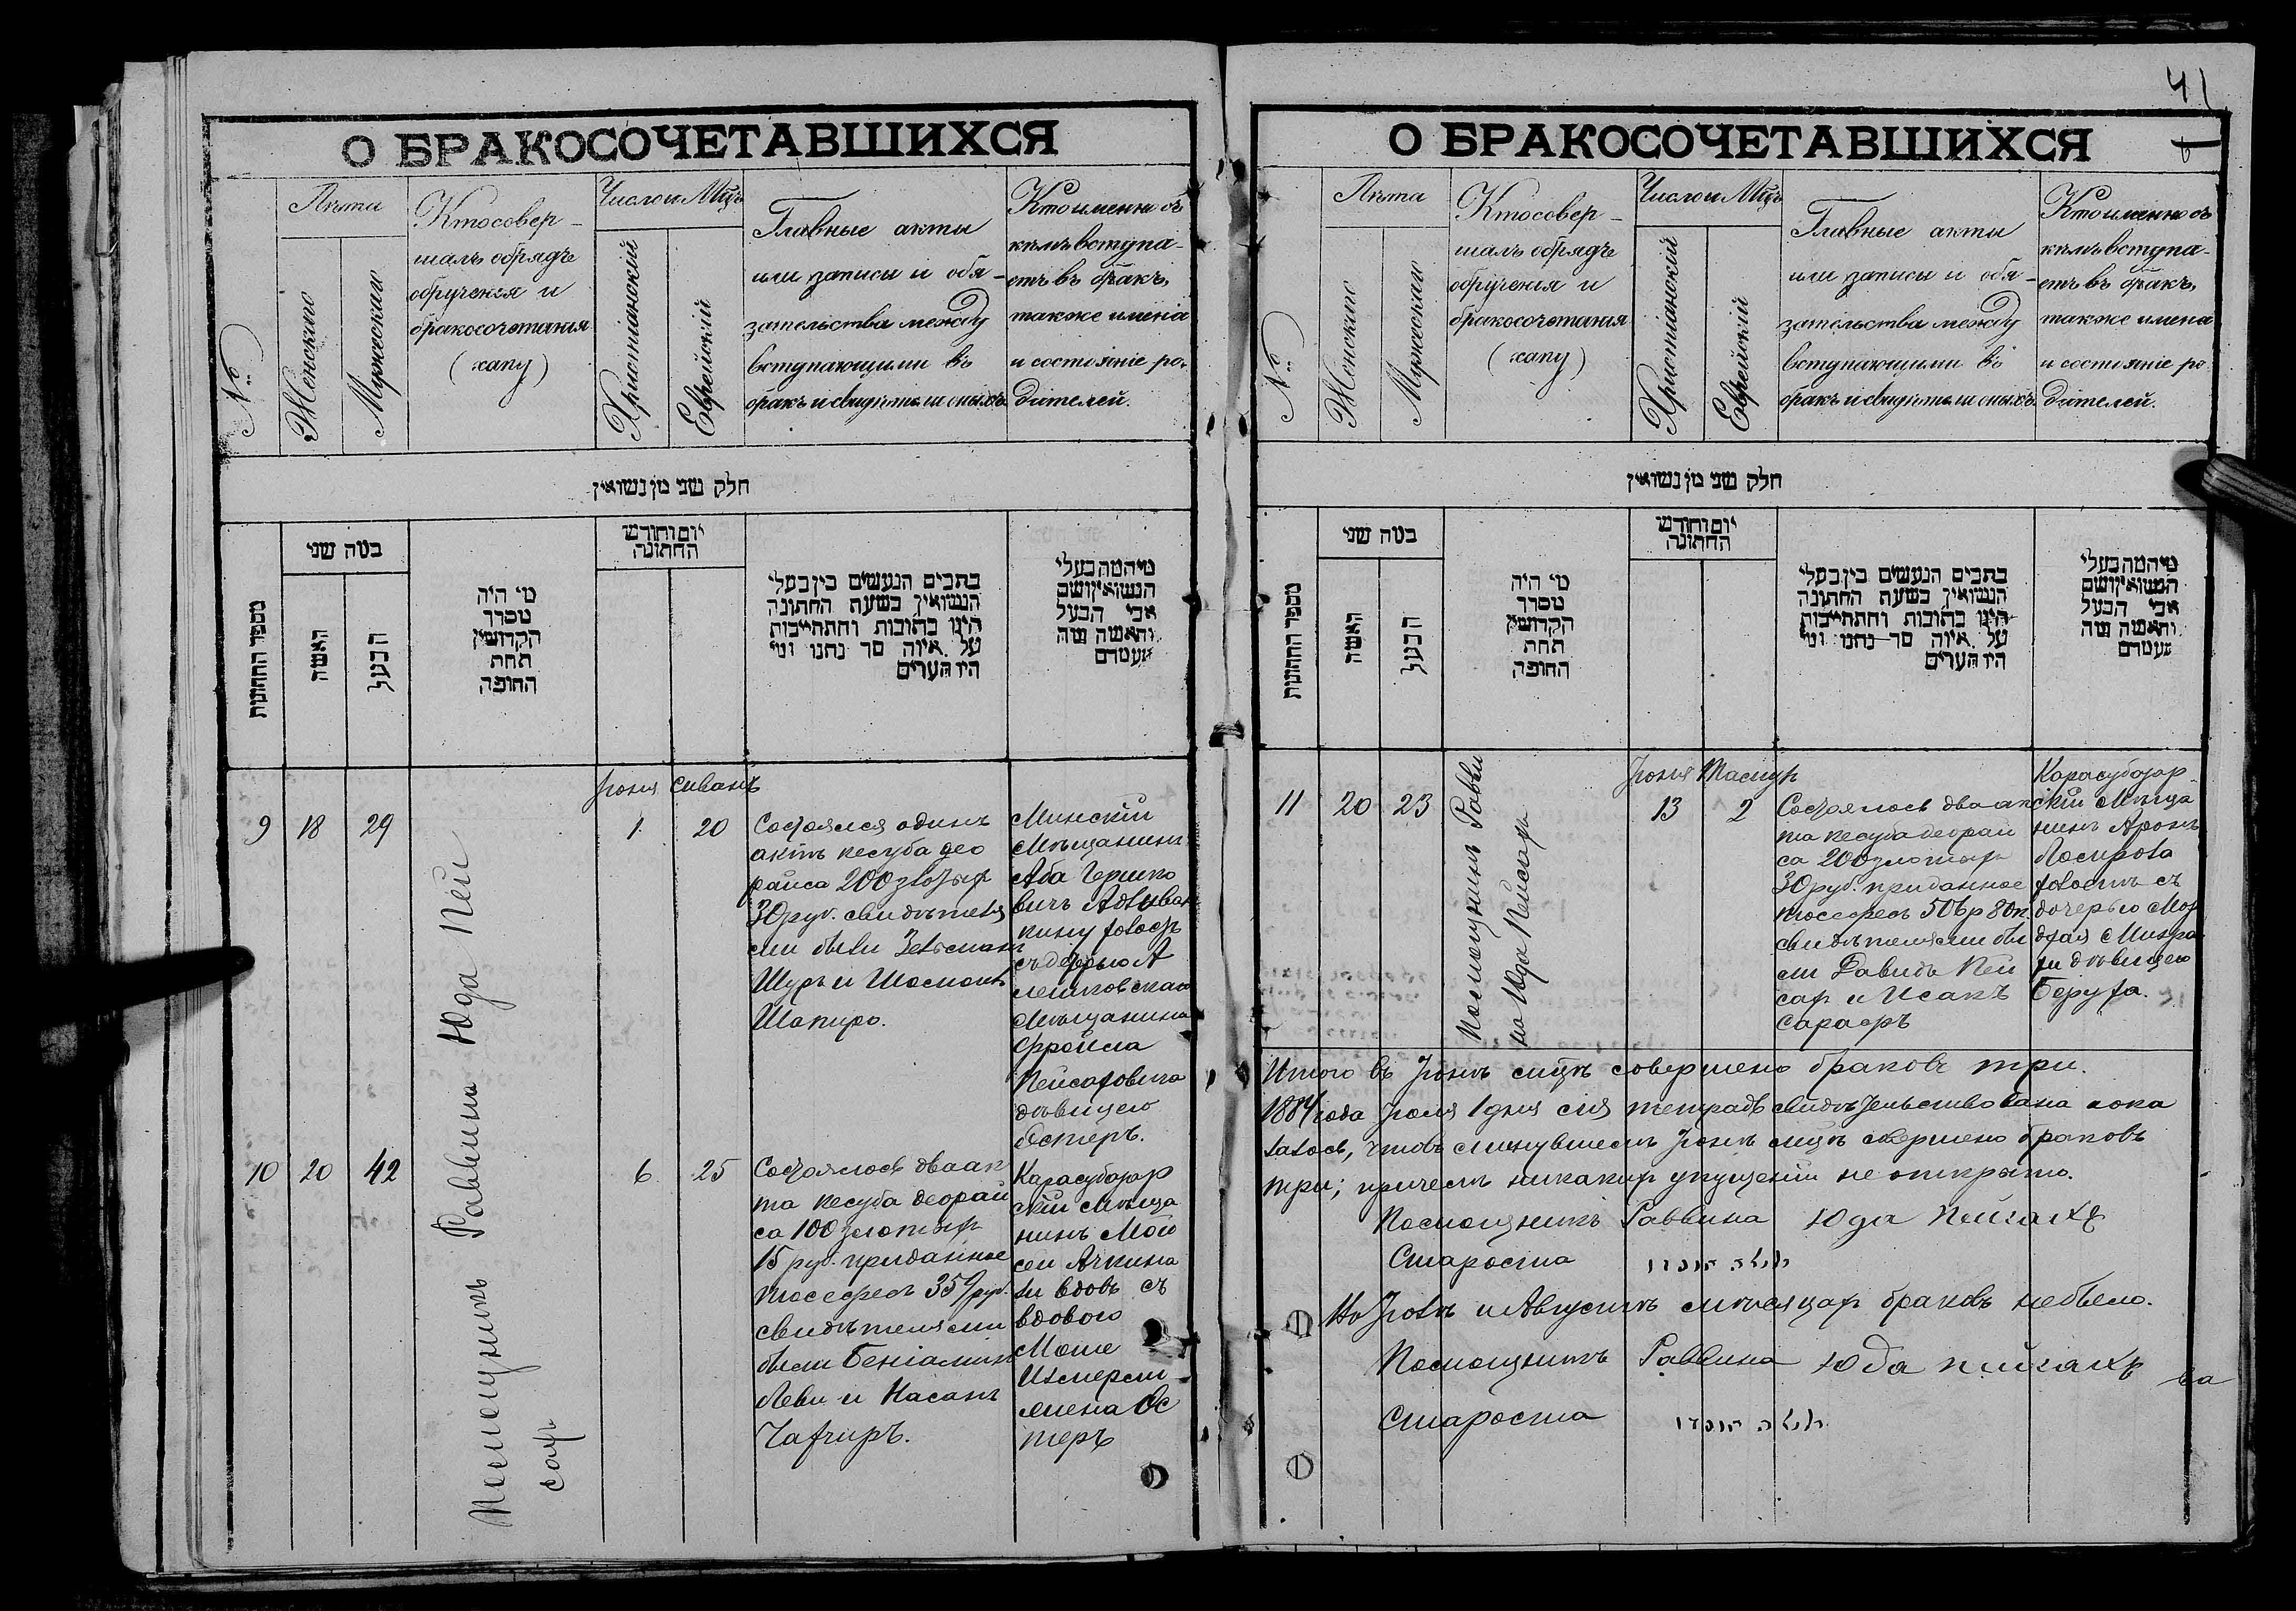 41
О БРАКОСОЧЕТАВШИХСЯ
№
Лѣта
Женскаго
Мужескаго
Кто совер-
шалъ обрядъ
обрученія и
бракосочетанія
(хапу)
Число и Мцъ
Христіанскій
Еврейскій
Главные акты
или записи и обя-
зательства между
вступающими въ
бракъ и свидѣтели оныхъ
Кто именно съ
кѣмъ вступа-
етъ въ бракъ,
также имена
и состояніе ро-
дителей.
חלק שני מן נשואין
מספר החתונות
כמה שני
האשה
הבעל
מי היה
מסדר
הקדושין
תחת
החופה
יום וחודש
החתונה
כתבים הנעשים בין בעלי
הנשואין בשעת החתונה
היינו כתובות והתחייבות
על איזה סך נתנו ומי
היו העדים
מי המה בעלי
הנשואין ושם
אבי הבעל
והאשה ומה
מעמדם
Іюня Сиванъ
9 18 29
1 20
Помощникъ Раввина Юда Пей
сахъ
Состоялся одинъ
актъ кесуба део
райса 200 злотыхъ
30 руб. свидѣтеля
ми были Зельманъ
Шуръ и Шоломъ
Шапиро.
Минскій
Мѣщанинъ
Аба Гершко
вичъ
холостъ
съ дочерью А
лешковскаго
Мѣщанина
Фроима
Пейсаховича
дѣвицею
Эстеръ.
10 20 42
6 25
Состоялось два ак
та кесуба деорай
са 100 злотыхъ
15 руб. приданное
тосефесъ 359 руб.
свидѣтелями
были Беніаминъ
Леви и Насанъ
Чахчиръ.
Карасубазар
скій Мѣща
нинъ Мои
сей Ачкина
зи вдовъ съ
вдовою
Моше
Измерли
елиена Эс
теръ
О БРАКОСОЧЕТАВШИХСЯ
№
Лѣта
Женскаго
Мужескаго
Кто совер-
шалъ обрядъ
обрученія и
бракосочетанія
(хапу)
Число и Мцъ
Христіанскій
Еврейскій
Главные акты
или записи и обя-
зательства между
вступающими въ
бракъ и свидѣтели оныхъ
Кто именно съ
кѣмъ вступа-
етъ въ бракъ,
также имена
и состояніе ро-
дителей.
חלק שני מן נשואין
מספר החתונות
כמה שני
האשה
הבעל
מי היה
מסדר
הקדושין
תחת
החופה
יום וחודש
החתונה
כתבים הנעשים בין בעלי
הנשואין בשעת החתונה
היינו כתובות והתחייבות
על איזה סך נתנו ומי
היו העדים
מי המה בעלי
הנשואין ושם
אבי הבעל
והאשה ומה
מעמדם
Іюня Тамузъ
11 20 23
Помощникъ Равви
на Юда Пейсахъ
13 2
Состоялось два ак
та кесуба деорай
са 200 злотыхъ
30 руб. приданное
тосефесъ 506 р 80 к.
свидѣтелями бы
ли Давидъ Пей
сах и Исакъ
Сарафъ
Карасубазар
скій Мѣща
нинъ Аронъ
холостъ съ
дочерью Мор
духая Мизра
хи дѣвицею
Беруха.
Итого въ Іюнѣ мцѣ совершено браковъ три.
1884 года Іюля 1 дня сія тетрадь свидѣтельствована ока
залось, что въ минувшемъ Іюнѣ мцѣ совершено браковъ
три; причемъ никакихъ упущеній не открыто.
Помощникъ Раввина Юда Пейсахъ
Староста
Въ Іюлѣ и Августѣ мѣсяцах браковъ небыло.
Помощникъ Раввина Юда Пейсахъ
Староста